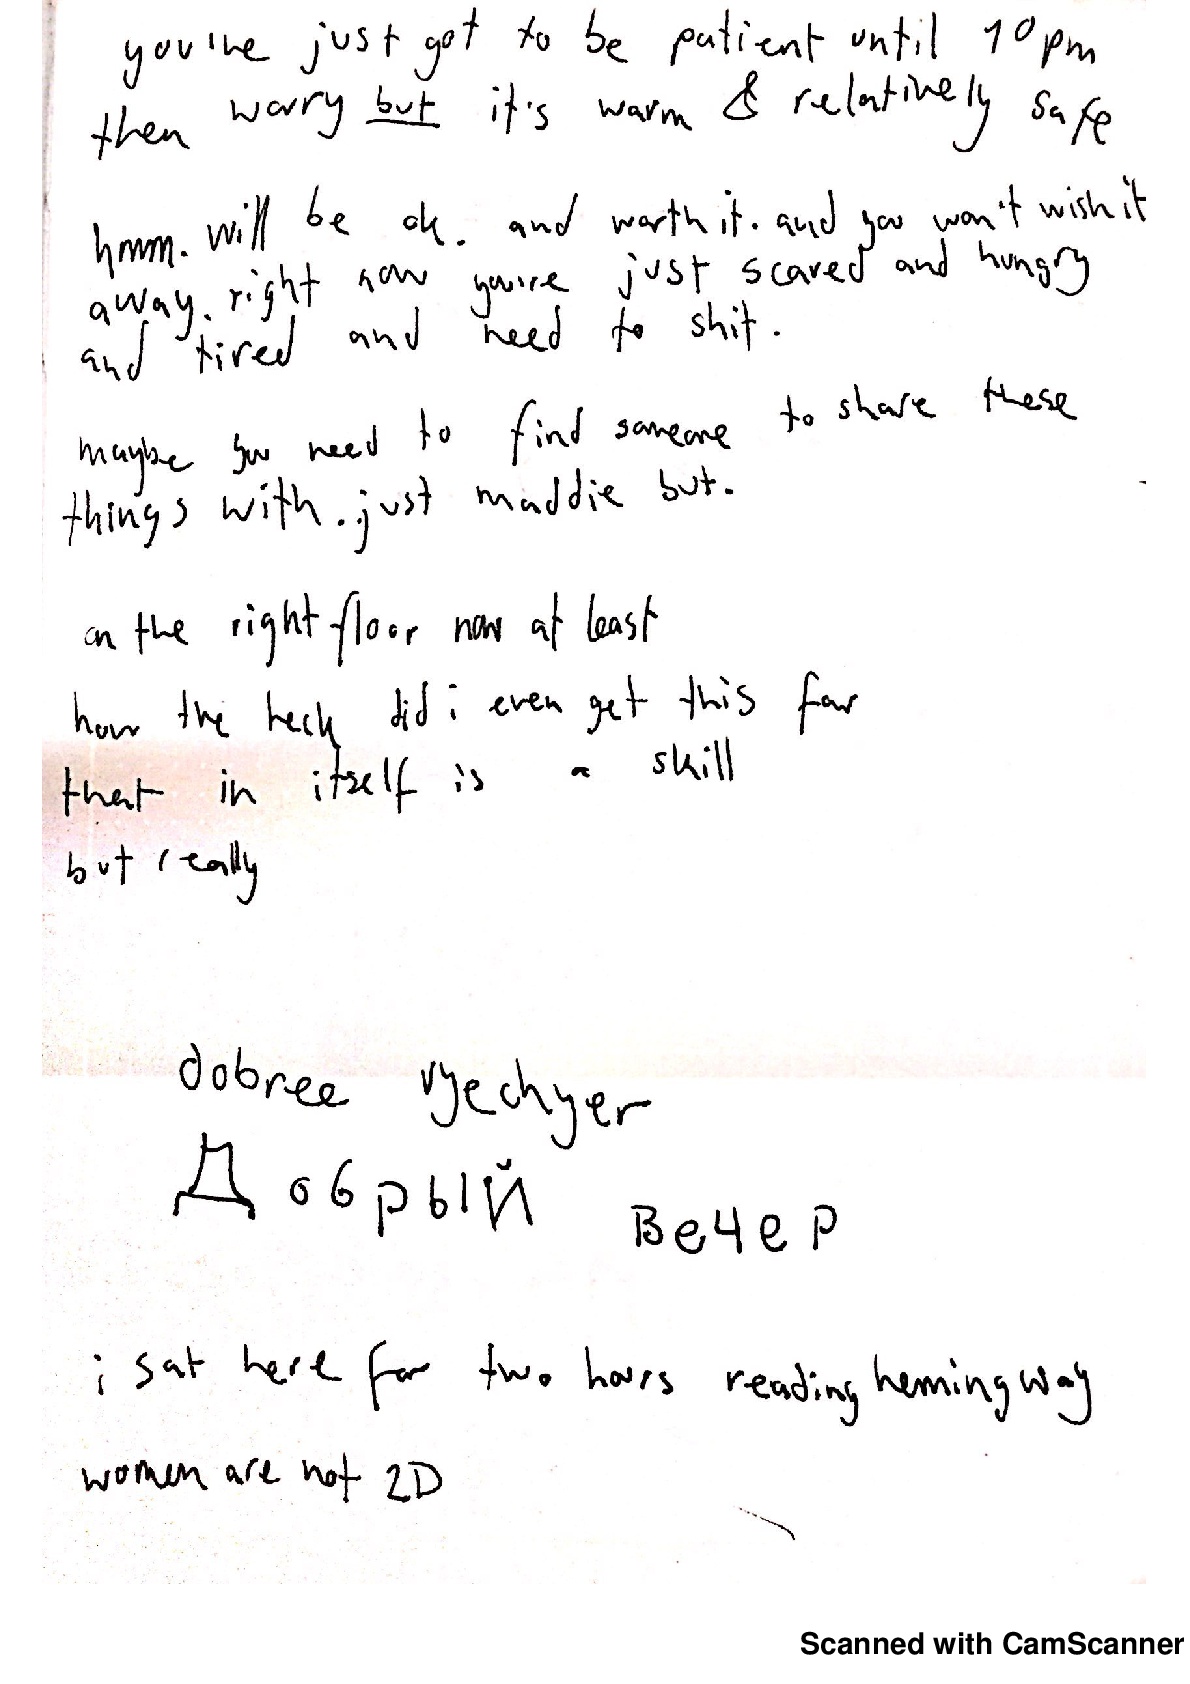 you've just got to be patient until 10pm
then worry but it's warm & relatively safe
hmm. will be ok. and worth it. and you won't wish it
away. right now you're just scared and hungry
and tired and need to shit.
maybe you need to find someone to share these
things with. just maddie but.
on the right floor now at least
how the heck did i even get this far
that in itself is a skill
but really
dobree vyechyer
Добрый Вечер
i sat here for two hours reading hemingway
women are not 2D
Scanned with CamScanner